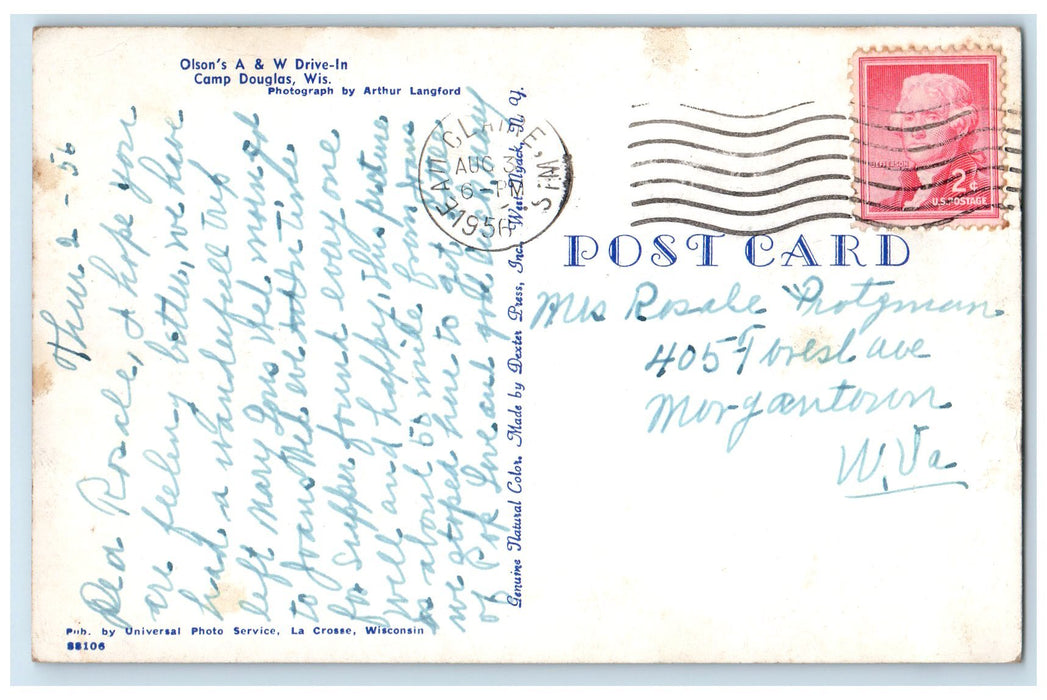 Olson's A & W Drive-In
Camp Douglas, Wis.
Photograph by Arthur Langford
Thur 2 - 56
Dea Rosale, I hope you
are feeling better, we have
had a wanderfull trip
left Mary Lous Wed. morning
to Joans Wed eve
for supper found every one
well and happy, this picture
is about 50 mile from Joans
we stoped here to get drink
of Pop Love and
Genuine Natural Color. Made by Dexter Press, Inc., West Nyack, N. Y.
Pub. by Universal Photo Service, La Crosse, Wisconsin
88106
EAU CLAIRE, WIS.
AUG 3
6 - PM
1956
JEFFERSON
2¢
U.S. POSTAGE
POST CARD
Mrs Rosale Protzman
405 Forest ave
Morgantown
W. Va